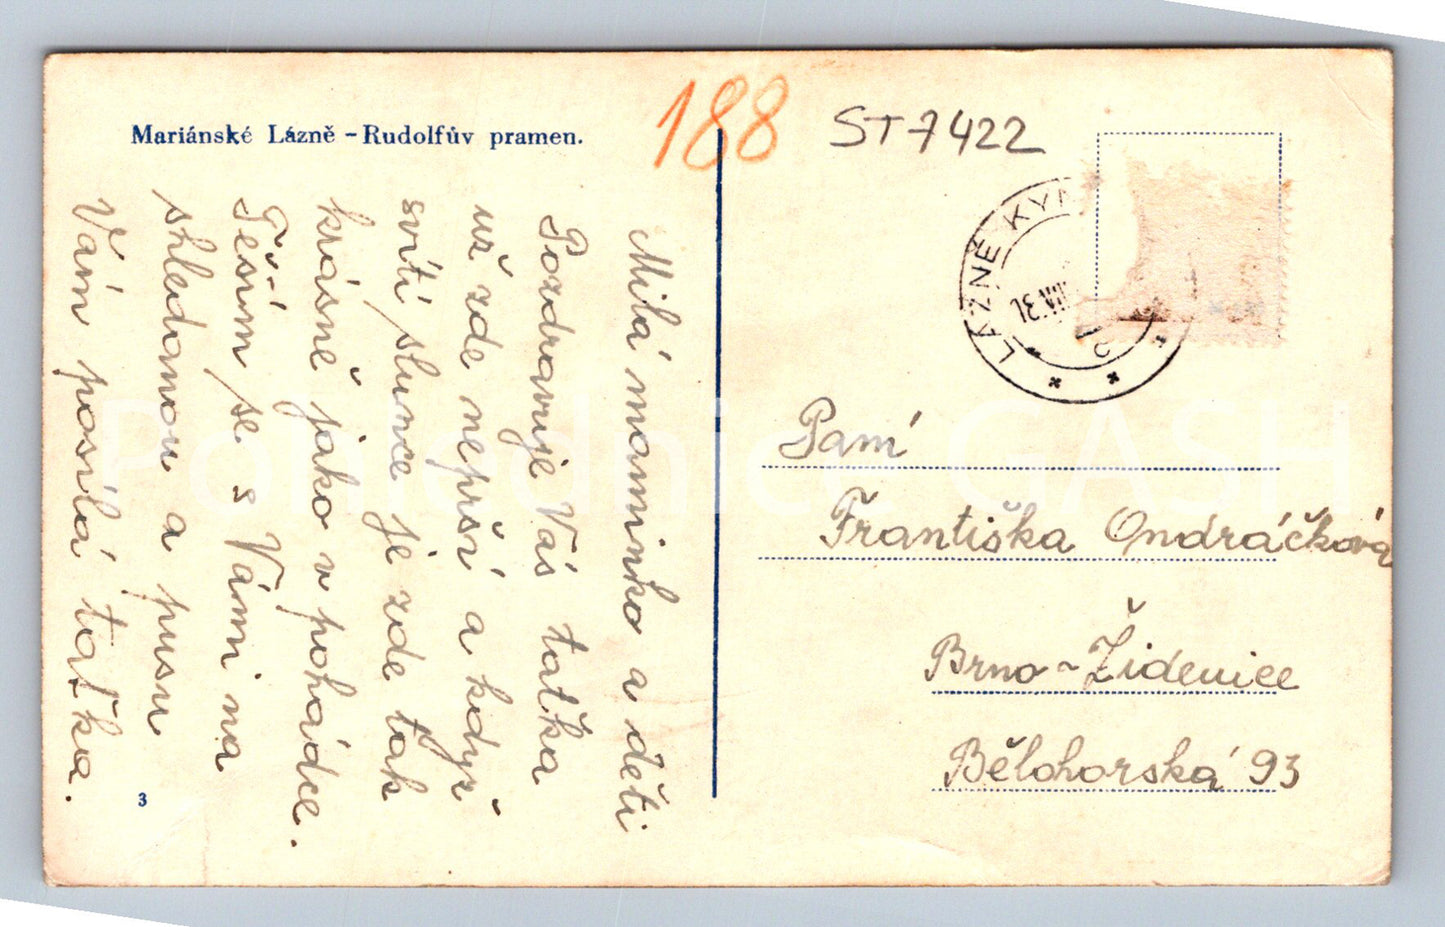 Mariánské Lázně - Rudolfův pramen.
188
ST 7422
LÁZNĚ KYN
Milá maminko a děti
Pozdravuje Vás taťka
už zde neprší a když
svítí slunce je zde tak
krásně jako v pohádce.
Těším se s Vámi na
shledanou a pusu
Vám posílá taťka.
Paní
Františka Ondráčková
Brno - Židenice
Bělohorská 93
3
Pohlednice GASH